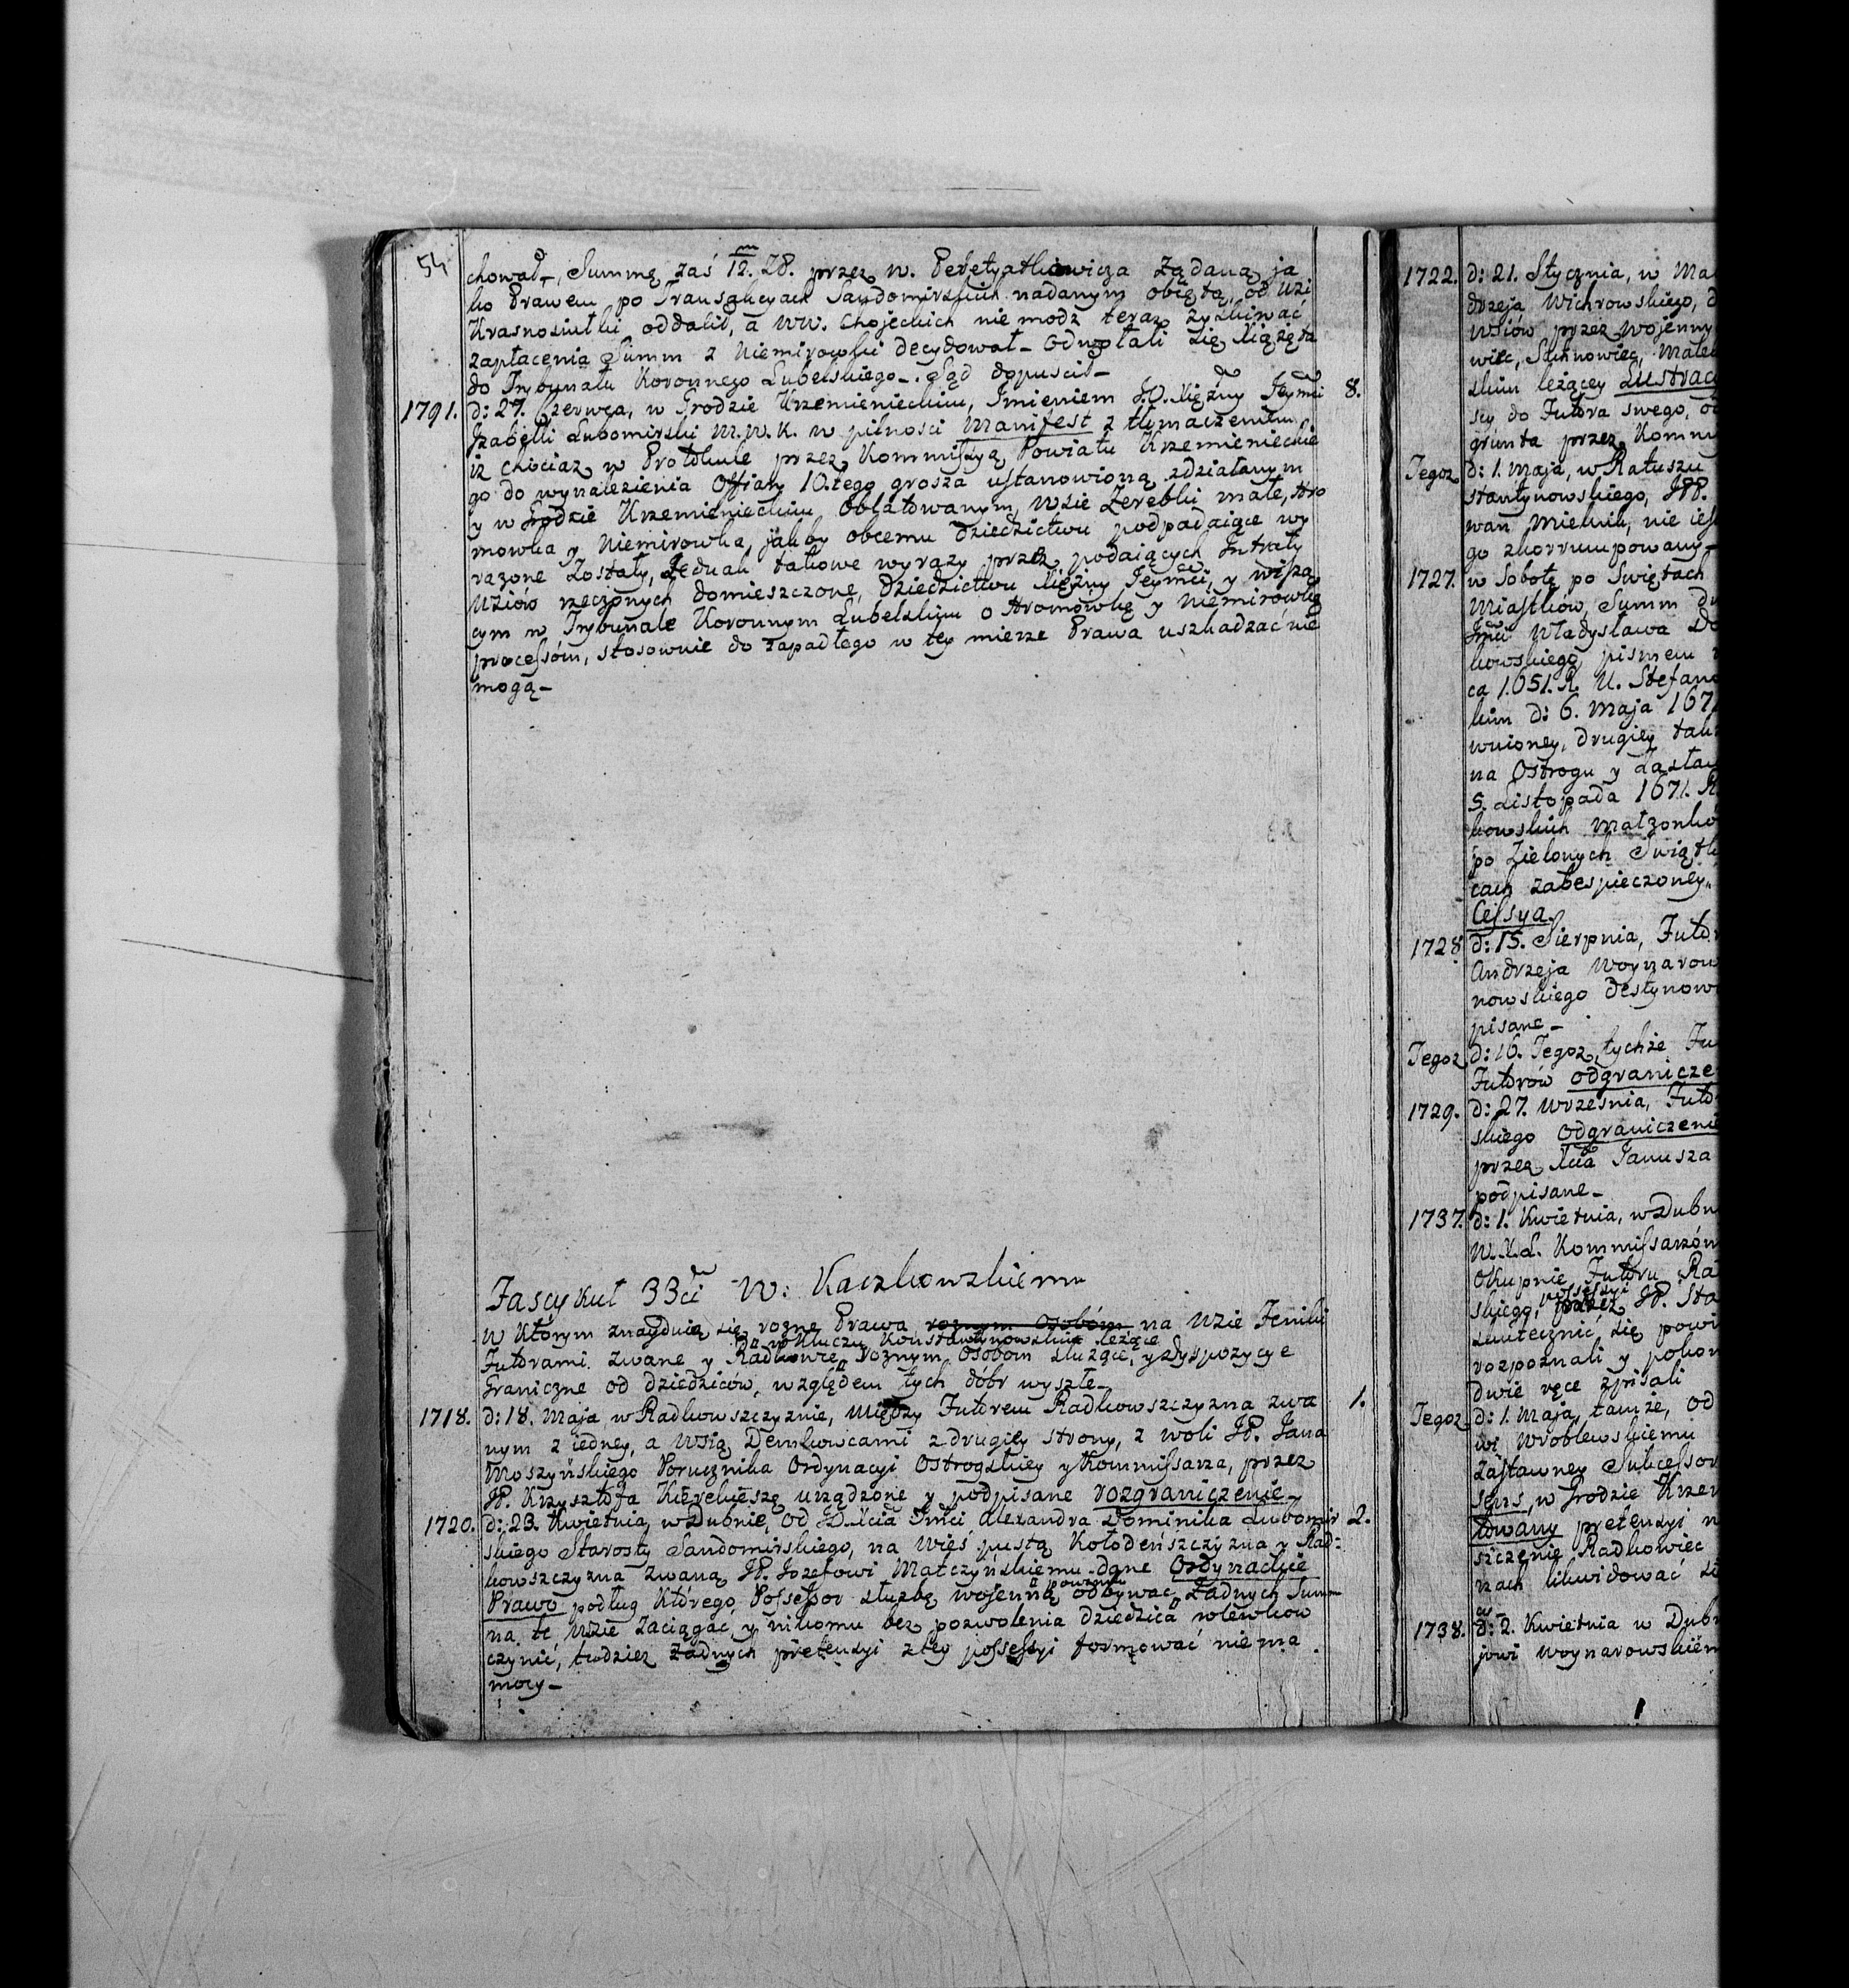 54
chował_, Summę zaś 12.m 28. przez W. Peretyatkowicza Żądaną ja
ko Prawem po Transakcyach Sandomirskich nadanym obiętą, od Wsi
Krasnosiułki oddalił, a WW. Chojeckich niemodz teraz zyskiwać
zapłacenia Summ z Niemirowki decydował_ Odwołali się Xiążęta
do Trybunału Koronnego Lubelskiego_. Sąd dopuścił_
1791. d: 27. Czerwca, w Grodzie Krzemienieckim, Imieniem J.O. Xiężny Jeymci 8.
Izabelli Lubomirski M.W.K. w pilności Manifest z tłymaczeniem,
iż chociaż w Protokule przez Kommissyą Powiatu Krzemienieckie
go do wynalezienia Offiary 10.tego grosza ustanowioną zdziałanym
y w Grodzie Krzemienieckim Oblatowanym, Wsie Zerebki małe, Hro
mowka y Niemirowka, jakby obcemu Dziedzictwu podpadaiące wy
rażone Zostały, Jednak takowe wyrazy przez podaiących Intraty
Wsiów rzeczonych domieszczone, Dziedzictwu Xiężny Jeymci, y wiszą
cym w Trybunale Koronnym Lubelskim o Hromówkę y Niemirowkę
processóm, stosownie do zapadłego w tey mierze Prawa uszkadzać nie
mogą_
Fascykuł 33ci W: Kaczkowskiemu
w Którym znayduią się rozne Prawa roznym Osobóm na Wsie Feniki
w Kluczu Konstantynowskim leżące
Futorami zwane y Radkowce roznym Osobom służące, y dyspozycye
Graniczne od dziedziców, względem tych dóbr wyszłe_
1718. d: 18. Maja w Radkowszczyznie, Między Futorem Radkowszczyzna zwa 1.
nym z iedney, a Wsią Demkowcami z drugiey strony, z woli JP. Jana
Moszyńskiego Porucznika Ordynacyi Ostrogskiey y Kommissarza, przez
JP. Krzysztofa Kierekieszę urządzone y podpisane rozgraniczenie_
1720. d: 23. Kwietnia, w Dubnie, od JO. Xcia Jmci Alexandra Dominika Lubomir 2.
skiego Starosty Sandomirskiego, na Wieś pustą Kołodeńszczyzna y Rad:
kowszczyzna zwaną JP. Jozefowi Małczyńskiemu dane Ordynackie
powinien
Prawo podług Którego Possessor służbę wojenną odbywać, Żadnych Summ
na te Wsie zaciągać, y nikomu bez pozwolenia dziedzica wlewkow
czynić, tudzież żadnych pretensyi z tey possessyi formować nie ma
mocy_
1722. d: 21. Stycznia, w Ma
drzeja Wichrowskiego, d
Wsiów przez Wojenny
wiec, Sachnowiec, Malew
skim leżącey Lustrac
scy do Futora swego, od
grunta przez Kommi
Tegoż d: 1. Maja, w Ratuszu
stantynowskiego, JPP.
wan Mielnik, nie jes
go zkorrumpowany_
1727. w Sobotę po Świętach
Miastków, Summ du
Jmci Władysława Do
kowskiego pismem
ca 1651. R. U. Stefan
kim d: 6. Maja 167
wnioney, drugiey tak
na Ostrogu y Zasław
5. Listopada 1671. R
kowskich Małżonko
po Zielonych Świątk
cach zabespieczoney,
Cessya.
1728 d: 15. Sierpnia, Futor
Andrzeja Woynarow
nowskiego destynow
pisane_
Tegoż d: 16. Tegoż, tychże Fu
Futorów odgranicze
1729. d: 27. Września, Futo
skiego Odgraniczenie
przez Xcia Janusza
podpisane_
1737. d: 1. Kwietnia, w Dubn
W.X.L. Kommissarzów
okupnie Futoru Ra
possessyi
skiego, JP. Sta
skutecznić się powi
rozpoznali y pokom
dwie ręce zpisali
Tegoż d: 1. Maja, tamże, od
wi Wroblewskiemu
Zastawney Sukcessor
sens, w Grodzie Krzem
towany pretensyi
szczenie Radkowiec
rzach likwidować
1738. d: 2. Kwietnia w Dubn
jowi Woynarowskiem